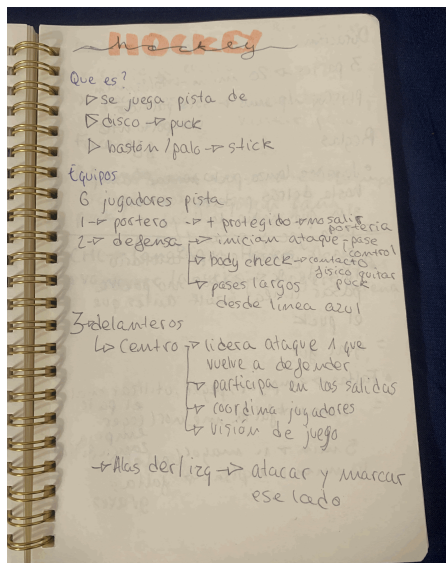 hockey
Que es?
▷ se juega pista de
▷ disco → puck
▷ bastón/palo → stick
Equipos
6 jugadores pista
1 → portero → + protegido → no salir portería
2 → defensa → inician ataque - pase control
→ body check → contacto físico quitar puck
→ pases largos
desde línea azul
3 → delanteros
↳ centro → lidera ataque 1 que
vuelve a defender
→ participa en las salidas
→ coordina jugadores
→ visión de juego
→ Alas der/izq → atacar y marcar
ese lado